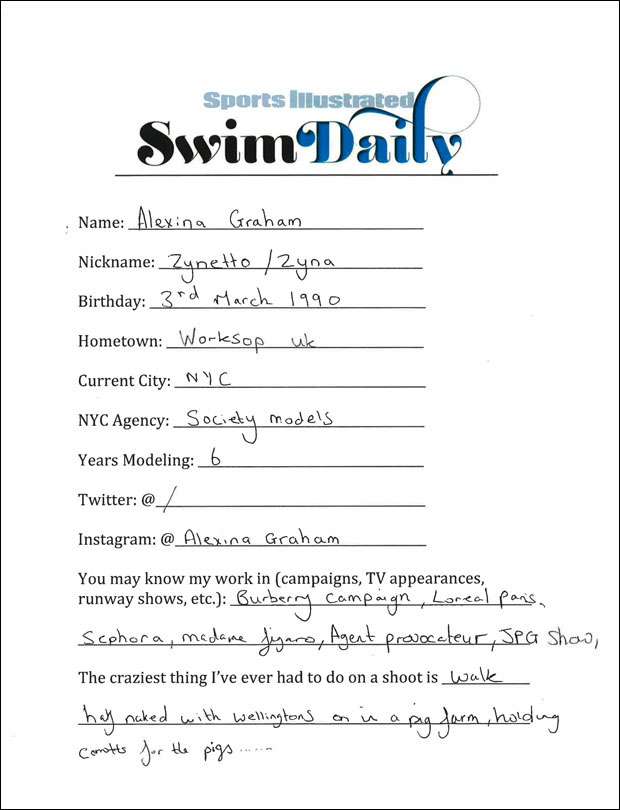 Sports Illustrated
Swim Daily
Name: Alexina Graham
Nickname: Zynetto / Zyna
Birthday: 3rd March 1990
Hometown: Worksop uk
Current City: NYC
NYC Agency: Society models
Years Modeling: 6
Twitter: @ /
Instagram: @ Alexina Graham
You may know my work in (campaigns, TV appearances,
runway shows, etc.): Burberry campaign, Loreal Paris,
Sephora, madame figaro, Agent provocateur, JPG Show,
The craziest thing I've ever had to do on a shoot is walk
half naked with wellingtons on in a pig farm, holding
carrots for the pigs ......